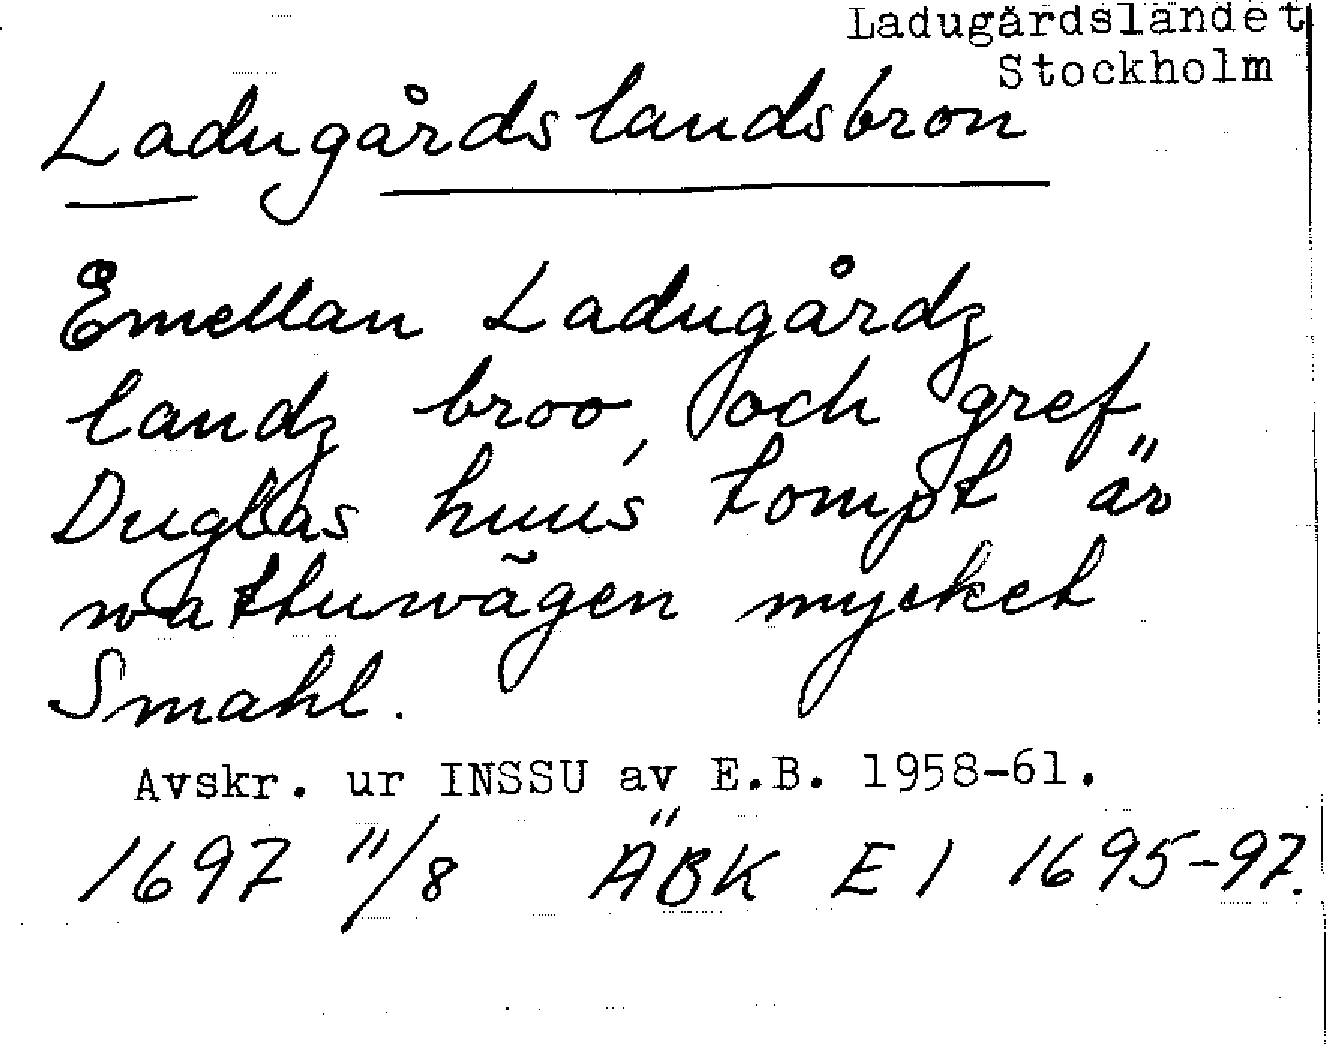 Ladugårdslandet
Stockholm
Ladugårdslandsbron
Emellan Ladugårdz
landz broo, och gref
Duglas huus tompt är
watturvägen mycket
Smahl.
Avskr. ur INSSU av E.B. 1958-61.
1697 11/8 ÄBK E 1 1695-97.